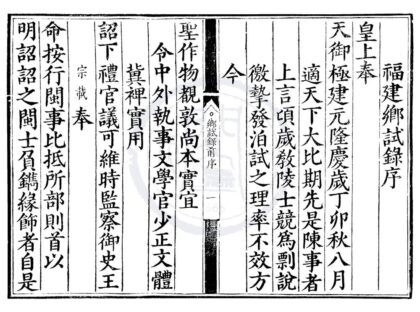 福建鄉試錄序
皇上奉
天御極建元隆慶歲丁卯秋八月
適天下大比期先是陳事者
上言頃歲教陵士競爲剽說
徼摯發泊試之理率不效方
今
鄉試錄前序 一
聖作物覩敦尚本實宜
令中外執事文學官少正文體
冀裨實用
詔下禮官議可維時監察御史王
宗載奉
命按行閩事比抵所部則首以
明詔詔之閩士貟鐫緣飾者自是